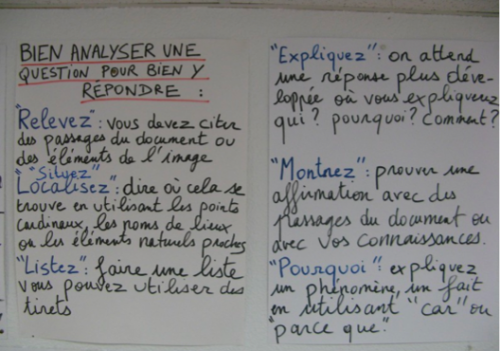 BIEN ANALYSER UNE
QUESTION POUR BIEN Y
RÉPONDRE :
"Relevez" : vous devez citer
des passages du document ou
des éléments de l'image
"Situez"
Localisez" : dire où cela se
trouve en utilisant les points
cardinaux, les noms de lieux
ou les éléments naturels proches
"Listez" : faire une liste
vous pouvez utiliser des
tirets
"Expliquez" : on attend
une réponse plus déve-
loppée où vous expliquerez
qui ? pourquoi ? comment ?
"Montrez" : prouver une
affirmation avec des
passages du document ou
avec vos connaissances.
"Pourquoi" : expliquez
un phénomène, un fait
en utilisant "car" ou
"parce que"